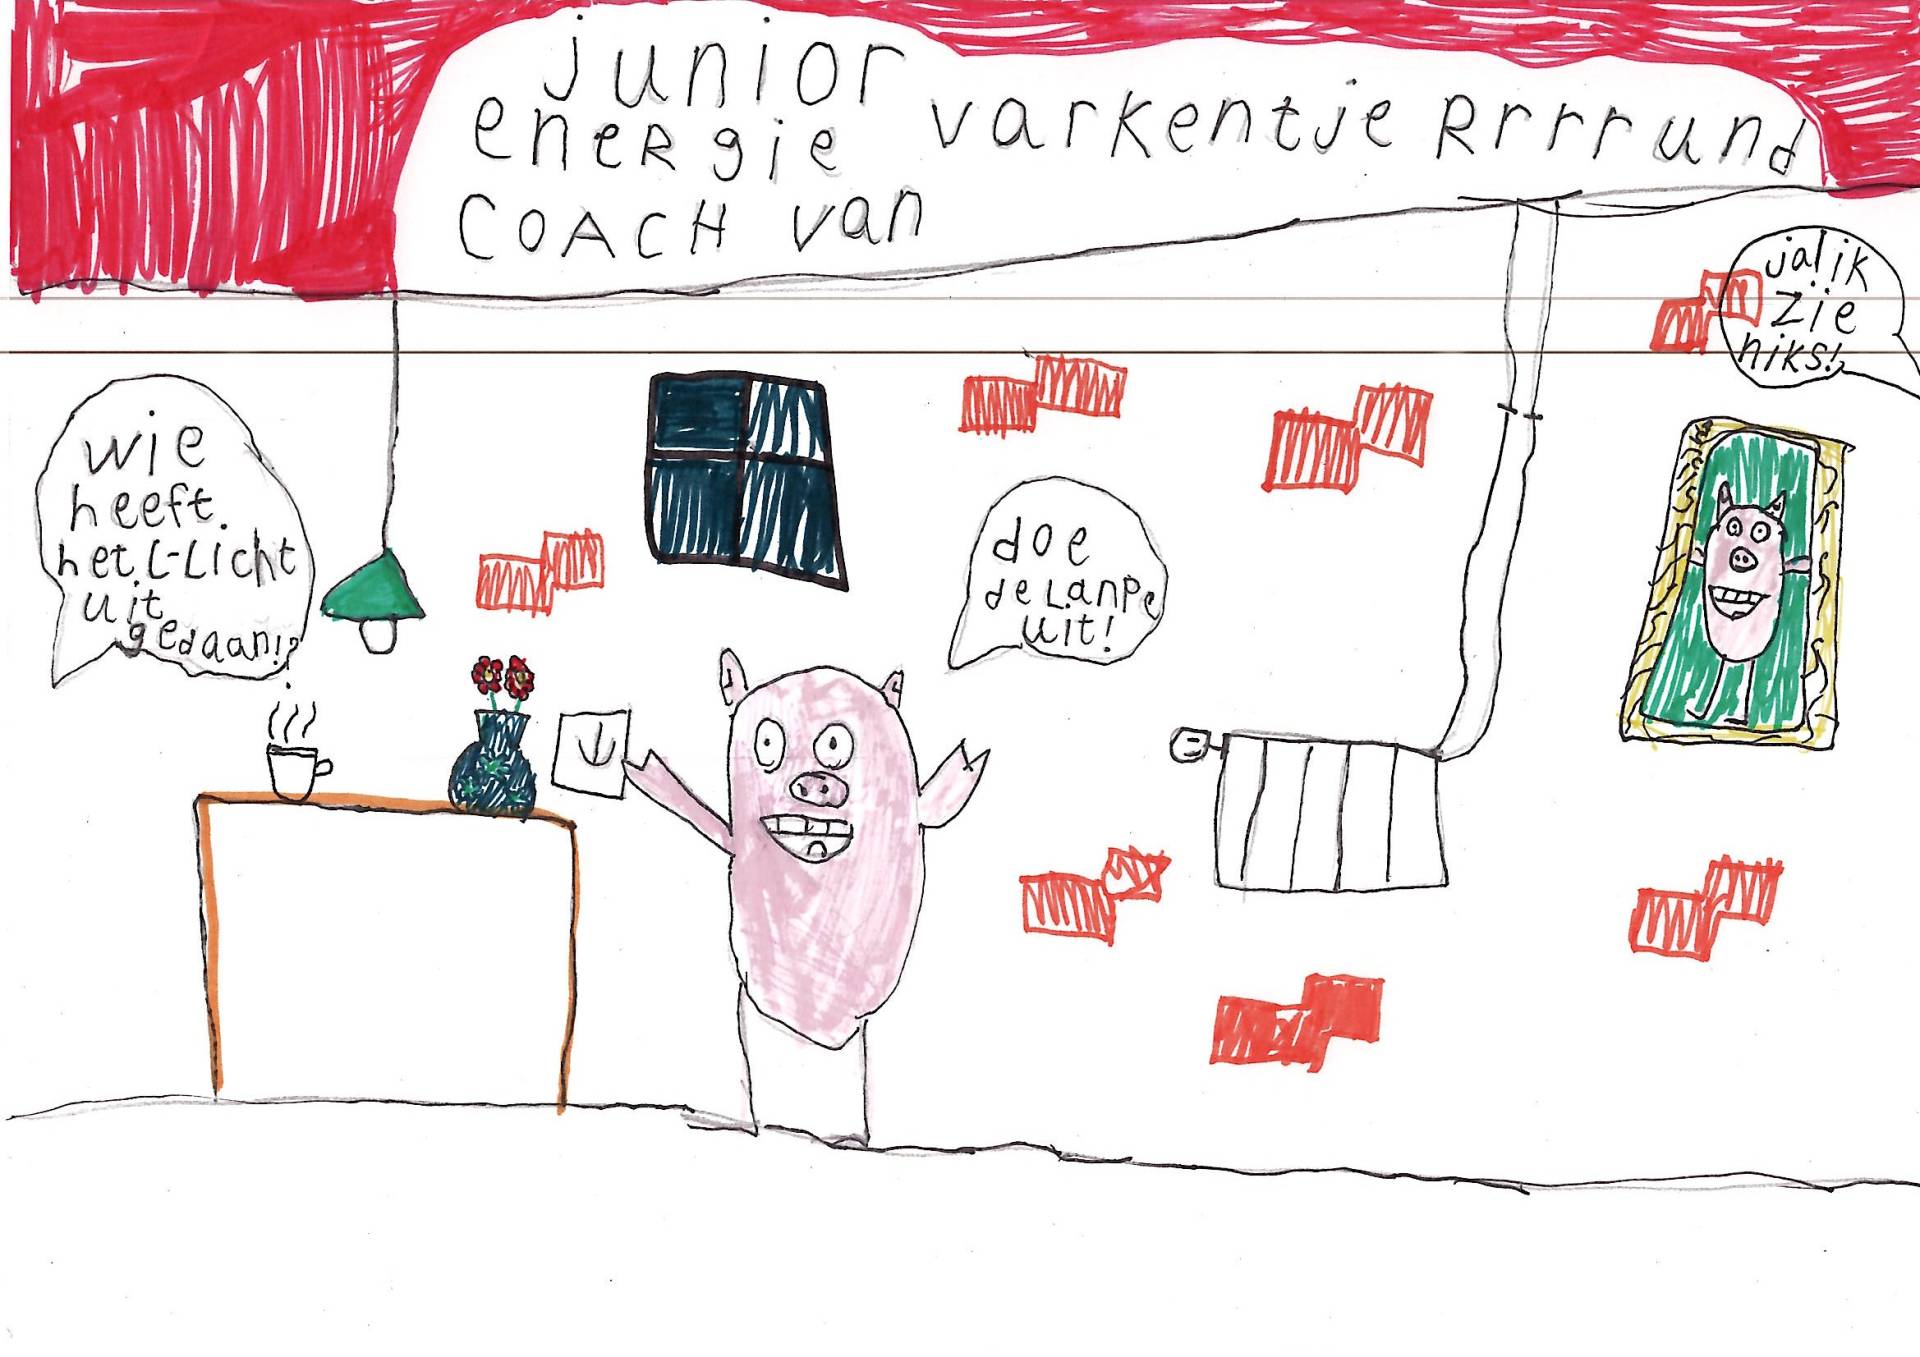 junior
eneRgie
COACH van
varkentje Rrrrund
wie
heeft
het L-Licht
uit
gedaan!?
doe
de Lanpe
uit!
ja! ik
zie
niks!